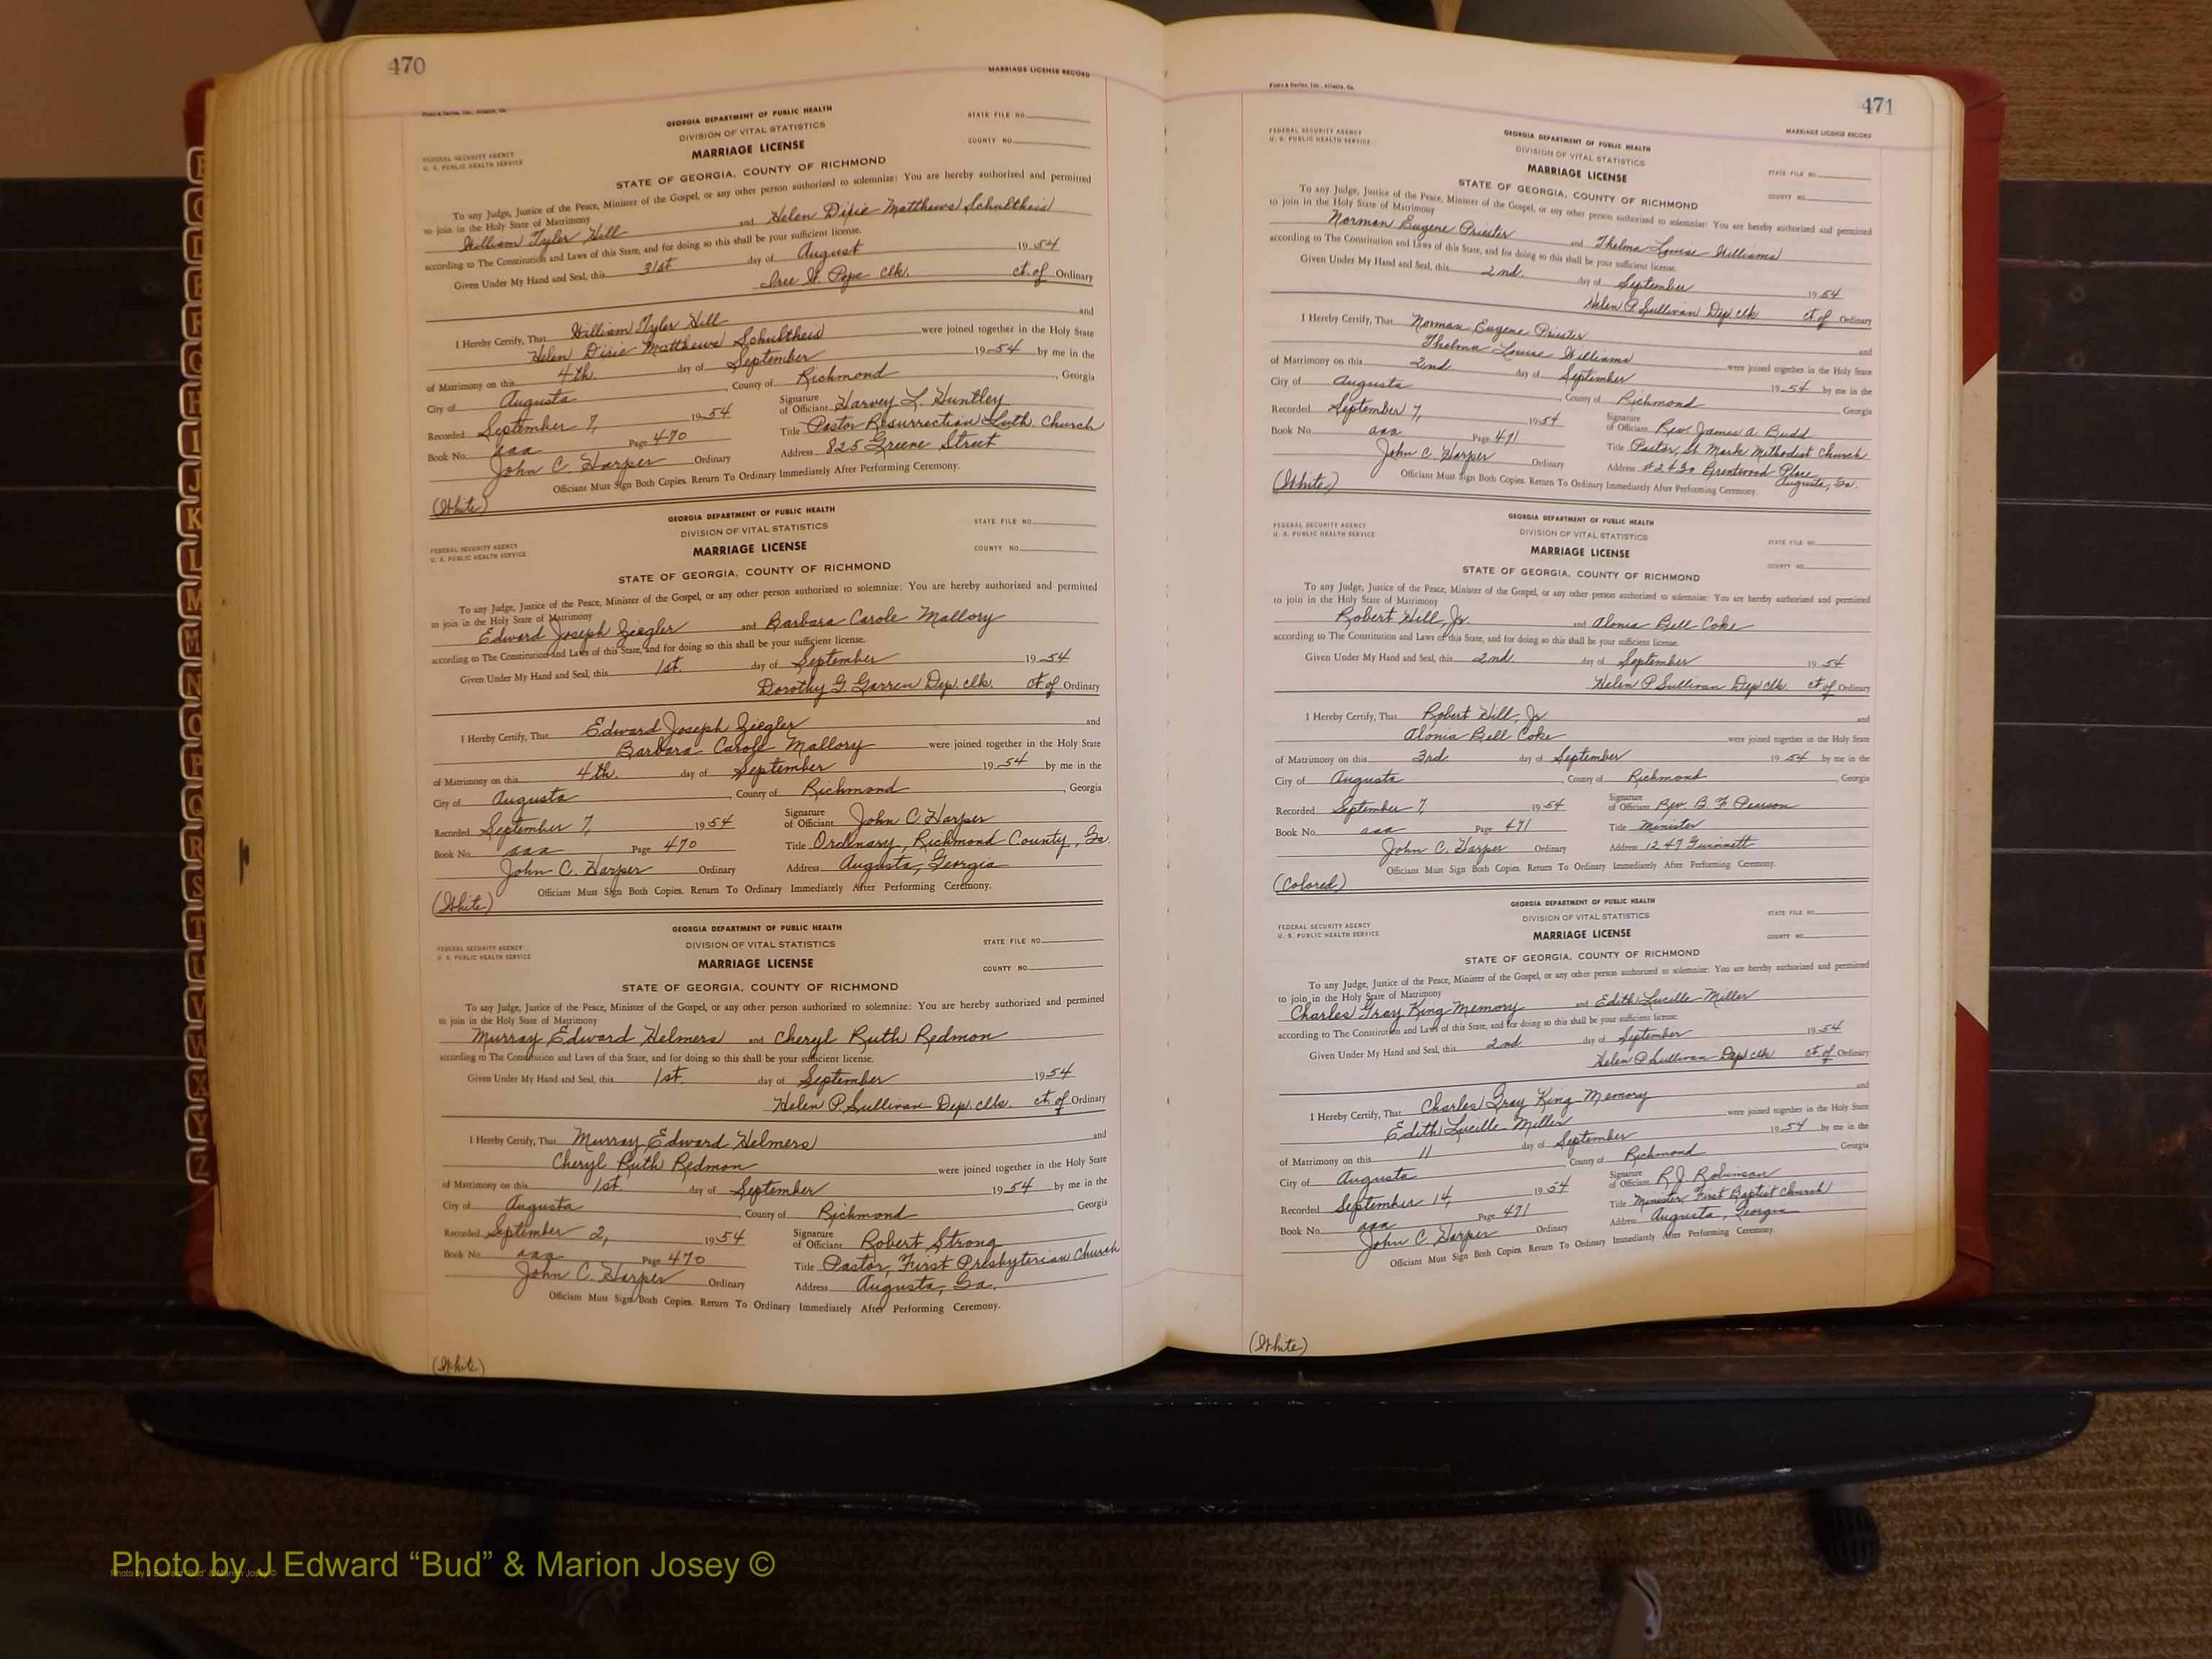 470
MARRIAGE LICENSE RECORD
GEORGIA DEPARTMENT OF PUBLIC HEALTH
DIVISION OF VITAL STATISTICS
MARRIAGE LICENSE
STATE FILE NO.
COUNTY NO.
FEDERAL SECURITY AGENCY
U. S. PUBLIC HEALTH SERVICE
STATE OF GEORGIA, COUNTY OF RICHMOND
To any Judge, Justice of the Peace, Minister of the Gospel, or any other person authorized to solemnize: You are hereby authorized and permitted
to join in the Holy State of Matrimony
William Tyler Hill and Helen Dixie Matthews Schultheis
according to The Constitution and Laws of this State, and for doing so this shall be your sufficient license.
Given Under My Hand and Seal, this 31st. day of August 1954
Pope clk. ct. of Ordinary
I Hereby Certify, That William Tyler Hill and
Helen Dixie Matthews Schultheis were joined together in the Holy State
of Matrimony on this 4th. day of September 1954 by me in the
City of Augusta, County of Richmond, Georgia
Recorded September 7, 1954 Signature of Officiant Harvey L. Huntley
Book No. aaa Page 470 Title Pastor Resurrection Luth. Church
John C. Harper Ordinary Address 825 Greene Street
Officiant Must Sign Both Copies. Return To Ordinary Immediately After Performing Ceremony.
(White)
GEORGIA DEPARTMENT OF PUBLIC HEALTH
DIVISION OF VITAL STATISTICS
MARRIAGE LICENSE
STATE FILE NO.
COUNTY NO.
FEDERAL SECURITY AGENCY
U. S. PUBLIC HEALTH SERVICE
STATE OF GEORGIA, COUNTY OF RICHMOND
To any Judge, Justice of the Peace, Minister of the Gospel, or any other person authorized to solemnize: You are hereby authorized and permitted
to join in the Holy State of Matrimony
Edward Joseph Ziegler and Barbara Carole Mallory
according to The Constitution and Laws of this State, and for doing so this shall be your sufficient license.
Given Under My Hand and Seal, this 1st. day of September 1954
Dorothy G. Garren Dep. clk. ct. of Ordinary
I Hereby Certify, That Edward Joseph Ziegler and
Barbara Carole Mallory were joined together in the Holy State
of Matrimony on this 4th. day of September 1954 by me in the
City of Augusta, County of Richmond, Georgia
Recorded September 7, 1954 Signature of Officiant John C. Harper
Book No. aaa Page 470 Title Ordinary, Richmond County, Ga.
John C. Harper Ordinary Address Augusta, Georgia
Officiant Must Sign Both Copies. Return To Ordinary Immediately After Performing Ceremony.
(White)
GEORGIA DEPARTMENT OF PUBLIC HEALTH
DIVISION OF VITAL STATISTICS
MARRIAGE LICENSE
STATE FILE NO.
COUNTY NO.
FEDERAL SECURITY AGENCY
U. S. PUBLIC HEALTH SERVICE
STATE OF GEORGIA, COUNTY OF RICHMOND
To any Judge, Justice of the Peace, Minister of the Gospel, or any other person authorized to solemnize: You are hereby authorized and permitted
to join in the Holy State of Matrimony
Murray Edward Helmers and Cheryl Ruth Redmon
according to The Constitution and Laws of this State, and for doing so this shall be your sufficient license.
Given Under My Hand and Seal, this 1st. day of September 1954
Helen P. Sullivan Dep. clk. ct. of Ordinary
I Hereby Certify, That Murray Edward Helmers and
Cheryl Ruth Redmon were joined together in the Holy State
of Matrimony on this 1st. day of September 1954 by me in the
City of Augusta, County of Richmond, Georgia
Recorded September 2, 1954 Signature of Officiant Robert Strong
Book No. aaa Page 470 Title Pastor, First Presbyterian Church
John C. Harper Ordinary Address Augusta, Ga.
Officiant Must Sign Both Copies. Return To Ordinary Immediately After Performing Ceremony.
(White)
471
MARRIAGE LICENSE RECORD
FEDERAL SECURITY AGENCY
U. S. PUBLIC HEALTH SERVICE
GEORGIA DEPARTMENT OF PUBLIC HEALTH
DIVISION OF VITAL STATISTICS
MARRIAGE LICENSE
STATE FILE NO.
COUNTY NO.
STATE OF GEORGIA, COUNTY OF RICHMOND
To any Judge, Justice of the Peace, Minister of the Gospel, or any other person authorized to solemnize: You are hereby authorized and permitted
to join in the Holy State of Matrimony
Norman Eugene Priester and Thelma Louise Williams
according to The Constitution and Laws of this State, and for doing so this shall be your sufficient license.
Given Under My Hand and Seal, this 2nd. day of September 1954
Helen P Sullivan Dep clk ct of Ordinary
I Hereby Certify, That Norman Eugene Priester and
Thelma Louise Williams were joined together in the Holy State
of Matrimony on this 2nd day of September 1954 by me in the
City of Augusta, County of Richmond, Georgia
Recorded September 7, 1954 Signature of Officiant Rev. James A. Budd
Book No. aaa Page 471 Title Pastor, St Mark Methodist Church
John C. Harper Ordinary Address Brentwood Place
Augusta, Ga.
Officiant Must Sign Both Copies. Return To Ordinary Immediately After Performing Ceremony.
(White)
FEDERAL SECURITY AGENCY
U. S. PUBLIC HEALTH SERVICE
GEORGIA DEPARTMENT OF PUBLIC HEALTH
DIVISION OF VITAL STATISTICS
MARRIAGE LICENSE
STATE FILE NO.
COUNTY NO.
STATE OF GEORGIA, COUNTY OF RICHMOND
To any Judge, Justice of the Peace, Minister of the Gospel, or any other person authorized to solemnize: You are hereby authorized and permitted
to join in the Holy State of Matrimony
Robert Hill, Jr. and Alonia Bell Coke
according to The Constitution and Laws of this State, and for doing so this shall be your sufficient license.
Given Under My Hand and Seal, this 2nd. day of September 1954
Helen P Sullivan Dep clk. ct of Ordinary
I Hereby Certify, That Robert Hill, Jr and
Alonia Bell Coke were joined together in the Holy State
of Matrimony on this 3rd. day of September 1954 by me in the
City of Augusta, County of Richmond, Georgia
Recorded September 7, 1954 Signature of Officiant Rev. B F Pearson
Book No. aaa Page 471 Title Minister
John C. Harper Ordinary Address 1247 Gwinnett
Officiant Must Sign Both Copies. Return To Ordinary Immediately After Performing Ceremony.
(Colored)
FEDERAL SECURITY AGENCY
U. S. PUBLIC HEALTH SERVICE
GEORGIA DEPARTMENT OF PUBLIC HEALTH
DIVISION OF VITAL STATISTICS
MARRIAGE LICENSE
STATE FILE NO.
COUNTY NO.
STATE OF GEORGIA, COUNTY OF RICHMOND
To any Judge, Justice of the Peace, Minister of the Gospel, or any other person authorized to solemnize: You are hereby authorized and permitted
to join in the Holy State of Matrimony
Charles Gray King Memory and Edith Lucille Miller
according to The Constitution and Laws of this State, and for doing so this shall be your sufficient license.
Given Under My Hand and Seal, this 2nd day of September 1954
Helen P Sullivan Dep clk ct of Ordinary
I Hereby Certify, That Charles Gray King Memory and
Edith Lucille Miller were joined together in the Holy State
of Matrimony on this 11 day of September 1954 by me in the
City of Augusta, County of Richmond, Georgia
Recorded September 14, 1954 Signature of Officiant R J. Robinson
Book No. aaa Page 471 Title Minister, First Baptist Church
John C. Harper Ordinary Address Augusta, Georgia
Officiant Must Sign Both Copies. Return To Ordinary Immediately After Performing Ceremony.
(White)
Photo by J Edward “Bud” & Marion Josey ©